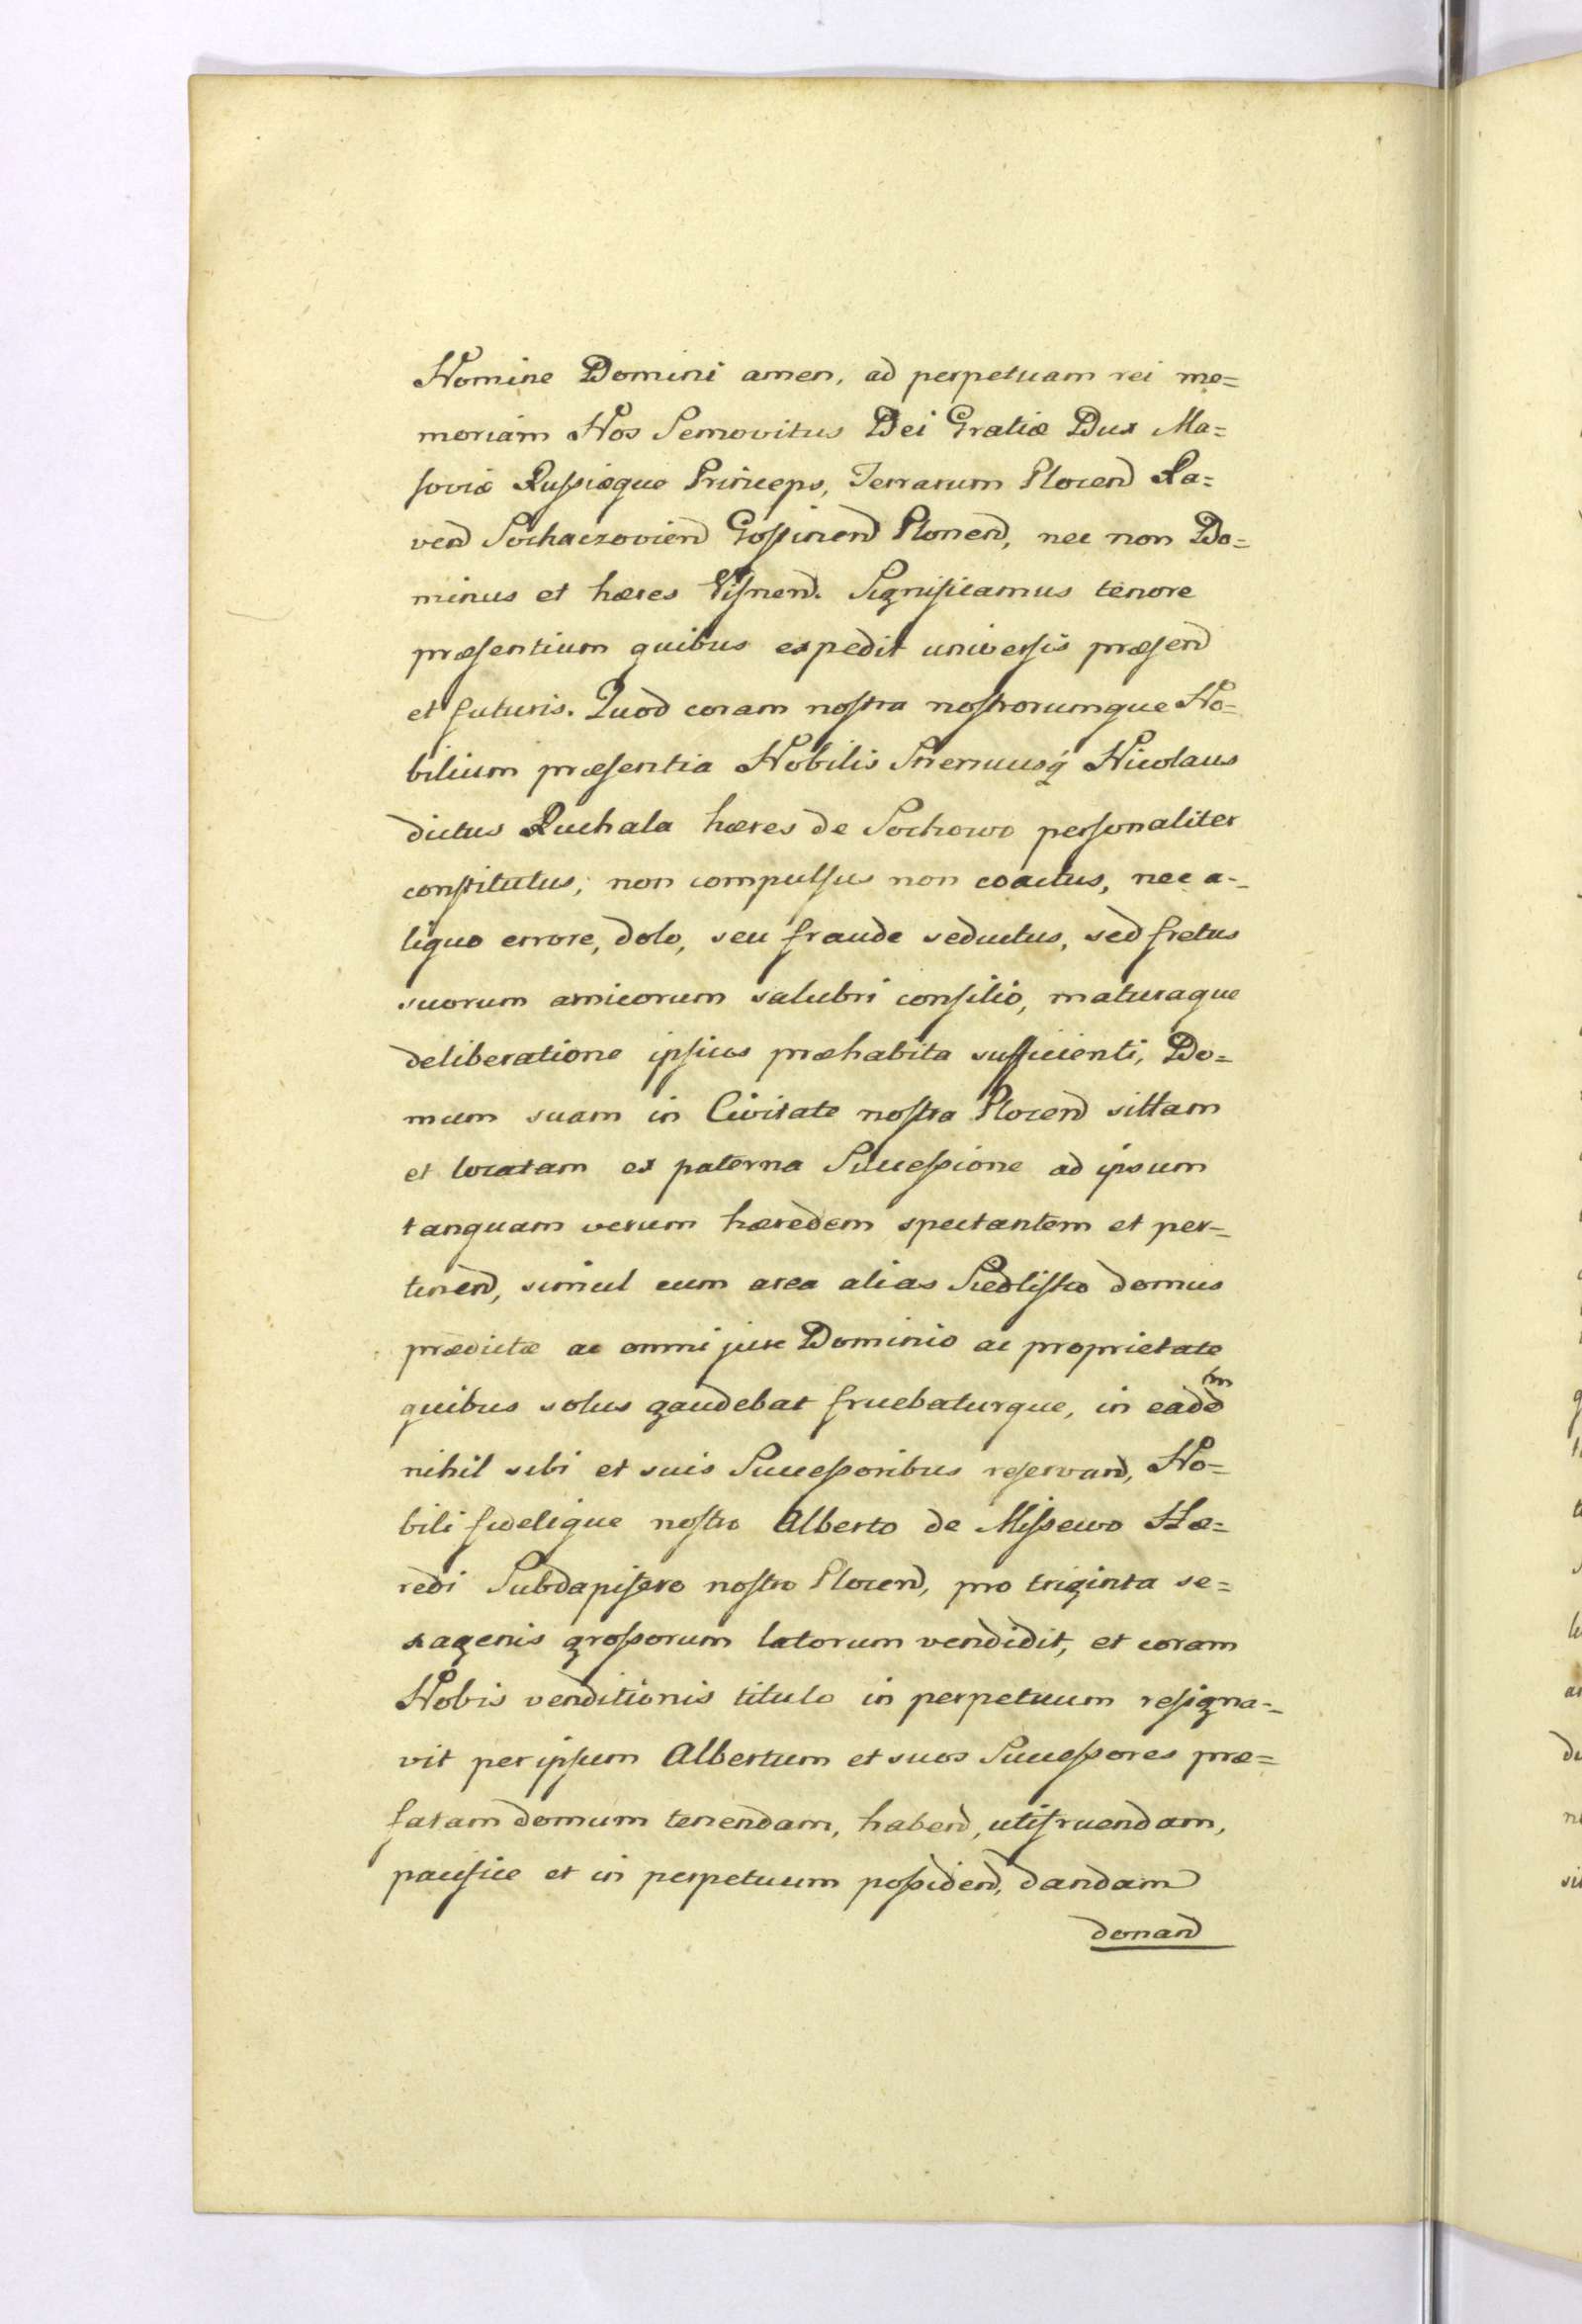 Nomine Domini amen, ad perpetuam rei me=
moriam Nos Semovitus Dei Gratiæ Dux Ma=
soviæ Russiæque Princeps, Terrarum Plocen̄ Ra=
ven̄ Sochaczovien̄ Gostinen̄ Plonen̄, nec non Do=
minus et hæres Visnen̄. Significamus tenore
præsentium quibus expedit universis præsen̄
et futuris. Quod coram nostra nostrorumque No=
bilium præsentia Nobilis Strenuusq̃ Nicolaus
dictus Ruchala hæres de Sochowo personaliter
constitutus, non compulsus non coactus, nec a=
liquo errore, dolo, seu fraude seductus, sed fretus
suorum amicorum salubri consilio, maturaque
deliberatione ipsius præhabita sufficienti, Do=
mum suam in Civitate nostra Plocen̄ sittam
et locatam ex paterna Successione ad ipsum
tanquam verum hæredem spectantem et per=
tinen̄, simul cum area alias Siedlisko domus
prædictæ ac omni jure Dominio ac proprietate
quibus solus gaudebat fruebaturque, in eadem
nihil sibi et suis Successoribus reservan̄, No=
bili fidelique nostro Alberto de Missewo Hæ=
redi Subdapifero nostro Plocen̄, pro triginta se=
xagenis grossorum latorum vendidit, et coram
Nobis venditionis titulo in perpetuum resigna=
vit per ipsum Albertum et suos Successores præ=
fatam domum tenendam, haben̄, utifruendam,
pacifice et in perpetuum possiden̄, dandam
donan̄